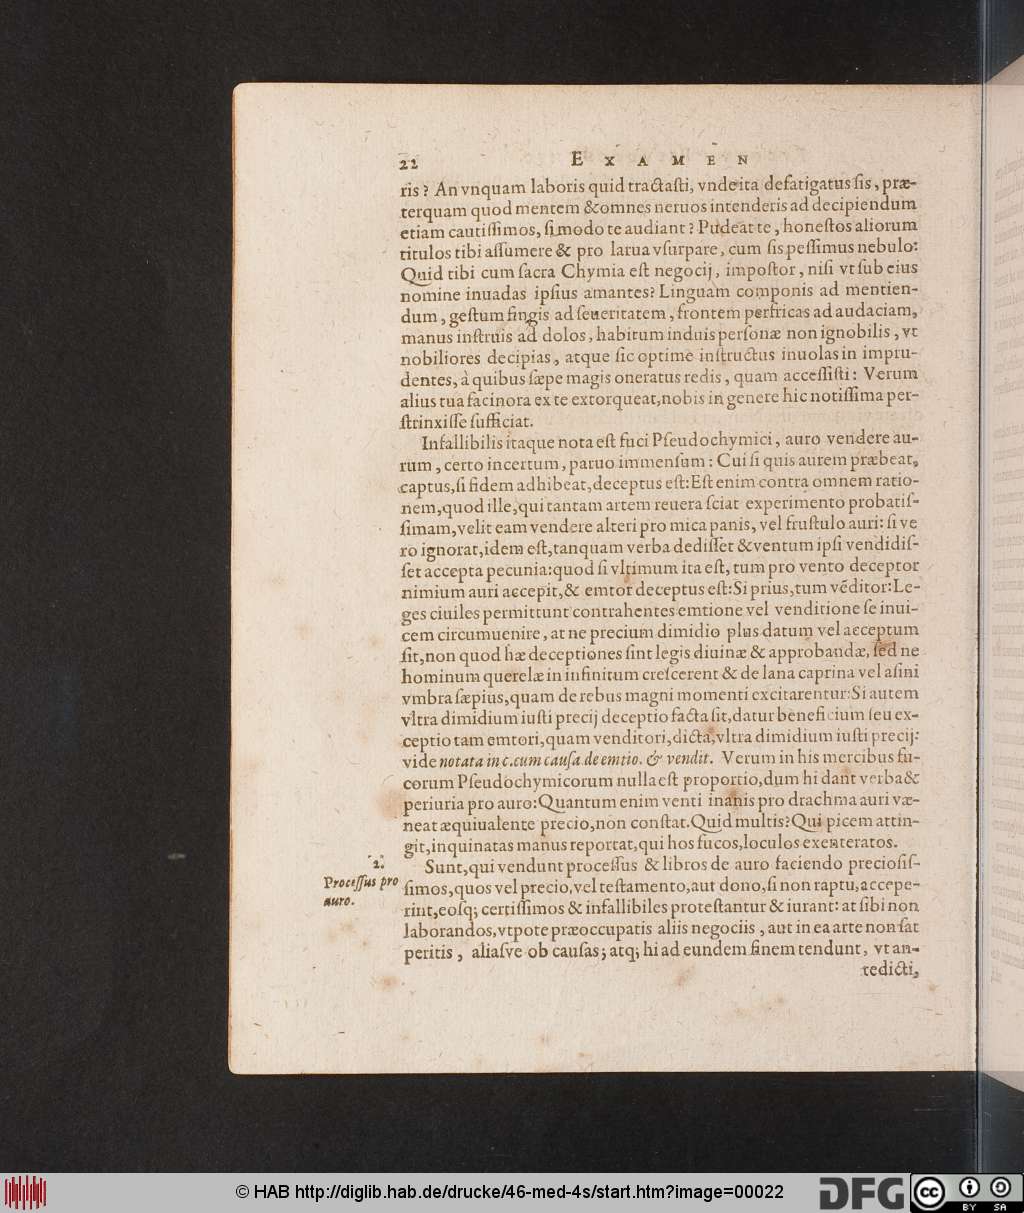 22 EXAMEN
ris? An vnquam laboris quid tractasti, vnde ita defatigatus sis, præ-
terquam quod mentem & omnes neruos intenderis ad decipiendum
etiam cautissimos, si modo te audiant? Pudeat te, honestos aliorum
titulos tibi assumere & pro larua vsurpare, cum sis pessimus nebulo:
Quid tibi cum sacra Chymia est negocij, impostor, nisi vt sub eius
nomine inuadas ipsius amantes? Linguam componis ad mentien-
dum, gestum fingis ad seueritatem, frontem perfricas ad audaciam,
manus instruis ad dolos, habitum induis personæ non ignobilis, vt
nobiliores decipias, atque sic optime instructus inuolas in impru-
dentes, à quibus sæpe magis oneratus redis, quam accessisti: Verum
alius tua facinora ex te extorqueat, nobis in genere hic notissima per-
strinxisse sufficiat.
Infallibilis itaque nota est fuci Pseudochymici, auro vendere au-
rum, certo incertum, paruo immensum: Cui si quis aurem præbeat,
captus, si fidem adhibeat, deceptus est: Est enim contra omnem ratio-
nem, quod ille, qui tantam artem reuera sciat experimento probatis-
simam, velit eam vendere alteri pro mica panis, vel frustulo auri: si ve
ro ignorat, idem est, tanquam verba dedisset & ventum ipsi vendidis-
set accepta pecunia: quod si vltimum ita est, tum pro vento deceptor
nimium auri accepit, & emtor deceptus est: Si prius, tum vẽditor: Le-
ges ciuiles permittunt contrahentes emtione vel venditione se inui-
cem circumuenire, at ne precium dimidio plus datum vel acceptum
sit, non quod hæ deceptiones sint legis diuinæ & approbandæ, sed ne
hominum querelæ in infinitum crescerent & de lana caprina vel asini
vmbra sæpius, quam de rebus magni momenti excitarentur: Si autem
vltra dimidium iusti precij deceptio facta sit, datur beneficium seu ex-
ceptio tam emtori, quam venditori, dicta, vltra dimidium iusti precij:
vide notata in c. cum causa de emtio. & vendit. Verum in his mercibus fu-
corum Pseudochymicorum nulla est proportio, dum hi dant verba &
periuria pro auro: Quantum enim venti inanis pro drachma auri væ-
neat æquiualente precio, non constat. Quid multis? Qui picem attin-
git, inquinatas manus reportat, qui hos fucos, loculos exenteratos.
2.
Processus pro
auro.
Sunt, qui vendunt processus & libros de auro faciendo preciosis-
simos, quos vel precio, vel testamento, aut dono, si non raptu, accepe-
rint, eosq; certissimos & infallibiles protestantur & iurant: at sibi non
laborandos, vtpote præoccupatis aliis negociis, aut in ea arte non sat
peritis, aliasve ob causas; atq; hi ad eundem finem tendunt, vt an-
tedicti,
© HAB http://diglib.hab.de/drucke/46-med-4s/start.htm?image=00022
DFG
cc
BY SA